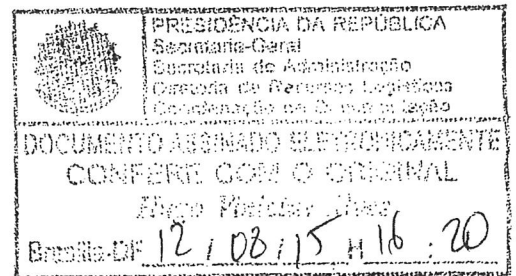 PRESIDÊNCIA DA REPÚBLICA
Secretaria-Geral
Secretaria de Administração
Diretoria de Recursos Logísticos
Coordenação de
DOCUMENTO ASSINADO ELETRONICAMENTE
CONFERE COM O ORIGINAL
Brasília-DF 12 / 08 / 15 H 16 : 20